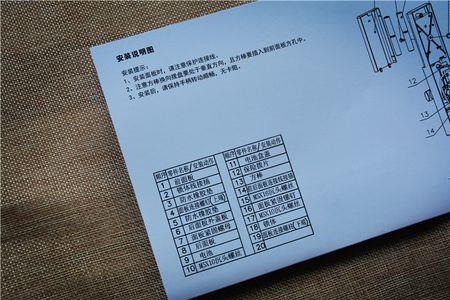 安装说明图
安装提示：
1、安装面板时，请注意保护连接线。
2、注意方棒换向摆盘要处于垂直方向，且方棒要插入到前面板方孔中。
3、安装后，请保持手柄转动顺畅，无卡阻。
顺序 零件名称/安装动作
1 前面板
2 锁体线接插
3 防水橡胶垫
4 面板连接螺钉(上端)
5 防水橡胶垫
6 后面板外盖板
7 面板紧固螺母
8 后面板
9 电池
10 M5X10沉头螺丝
顺序 零件名称/安装动作
11 电池盖
12 保险拨片
13 方棒
14
15 M5X10沉头螺丝
16 面板紧固螺钉
17 M5X10沉头螺丝
18 锁体
19 面板连接螺钉(下端)
20
12
13
14